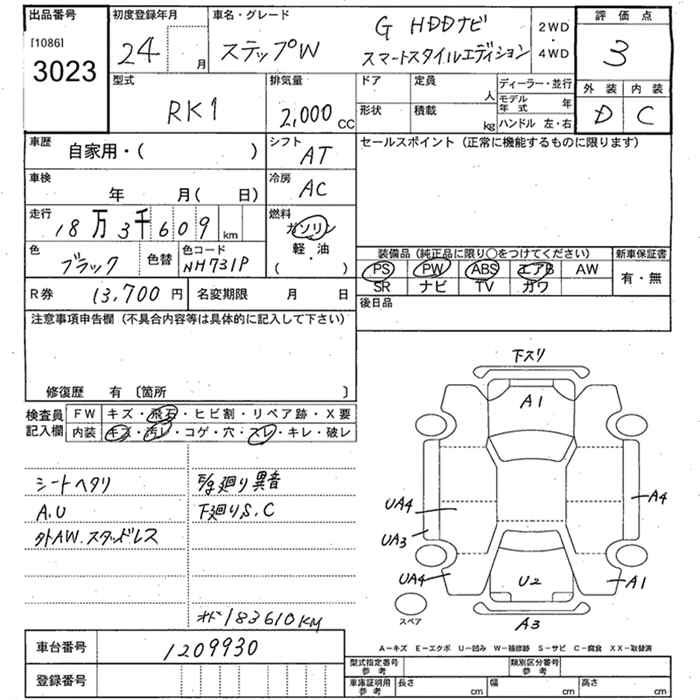 出品番号
[1086]
3023
初度登録年月
24 月
車名・グレード
ステップW
G HDDナビ
スマートスタイルエディション
2WD
・
4WD
評価点
3
外装 内装
D C
型式
RK1
排気量
2,000 cc
ドア 定員
人
形状 積載
kg
ディーラー・並行
モデル年式 年
ハンドル 左・右
車歴
自家用・( )
シフト
AT
セールスポイント (正常に機能するものに限ります)
車検
年 月( 日)
冷房
AC
走行
18万3千609 km
燃料
ガソリン
軽・油
( )
色
ブラック
色替
色コード
NH731P
装備品 (純正品に限り○をつけてください)
新車保証書
PS PW ABS エアB AW
SR ナビ TV ガワ
有・無
R券 13,700 円
名変期限 月 日
後日品
注意事項申告欄 (不具合内容等は具体的に記入して下さい)
修復歴 有 〔箇所 〕
検査員記入欄
FW キズ・飛石・ヒビ割・リペア跡・X要
内装 キズ・汚レ・コゲ・穴・スレ・キレ・破レ
シートヘタリ
E/g廻り異音
A.U
下廻りS.C
外AW.スタッドレス
オド183610KM
車台番号 1209930
登録番号
下スリ
A1
UA4
A4
UA3
UA4
U2
A1
スペア
A3
A−キズ E−エクボ U−凹み W−補修跡 S−サビ C−腐食 XX−取替済
型式指定番号
参考
類別区分番号
参考
車庫証明用
参考
長さ cm 幅 cm 高さ cm